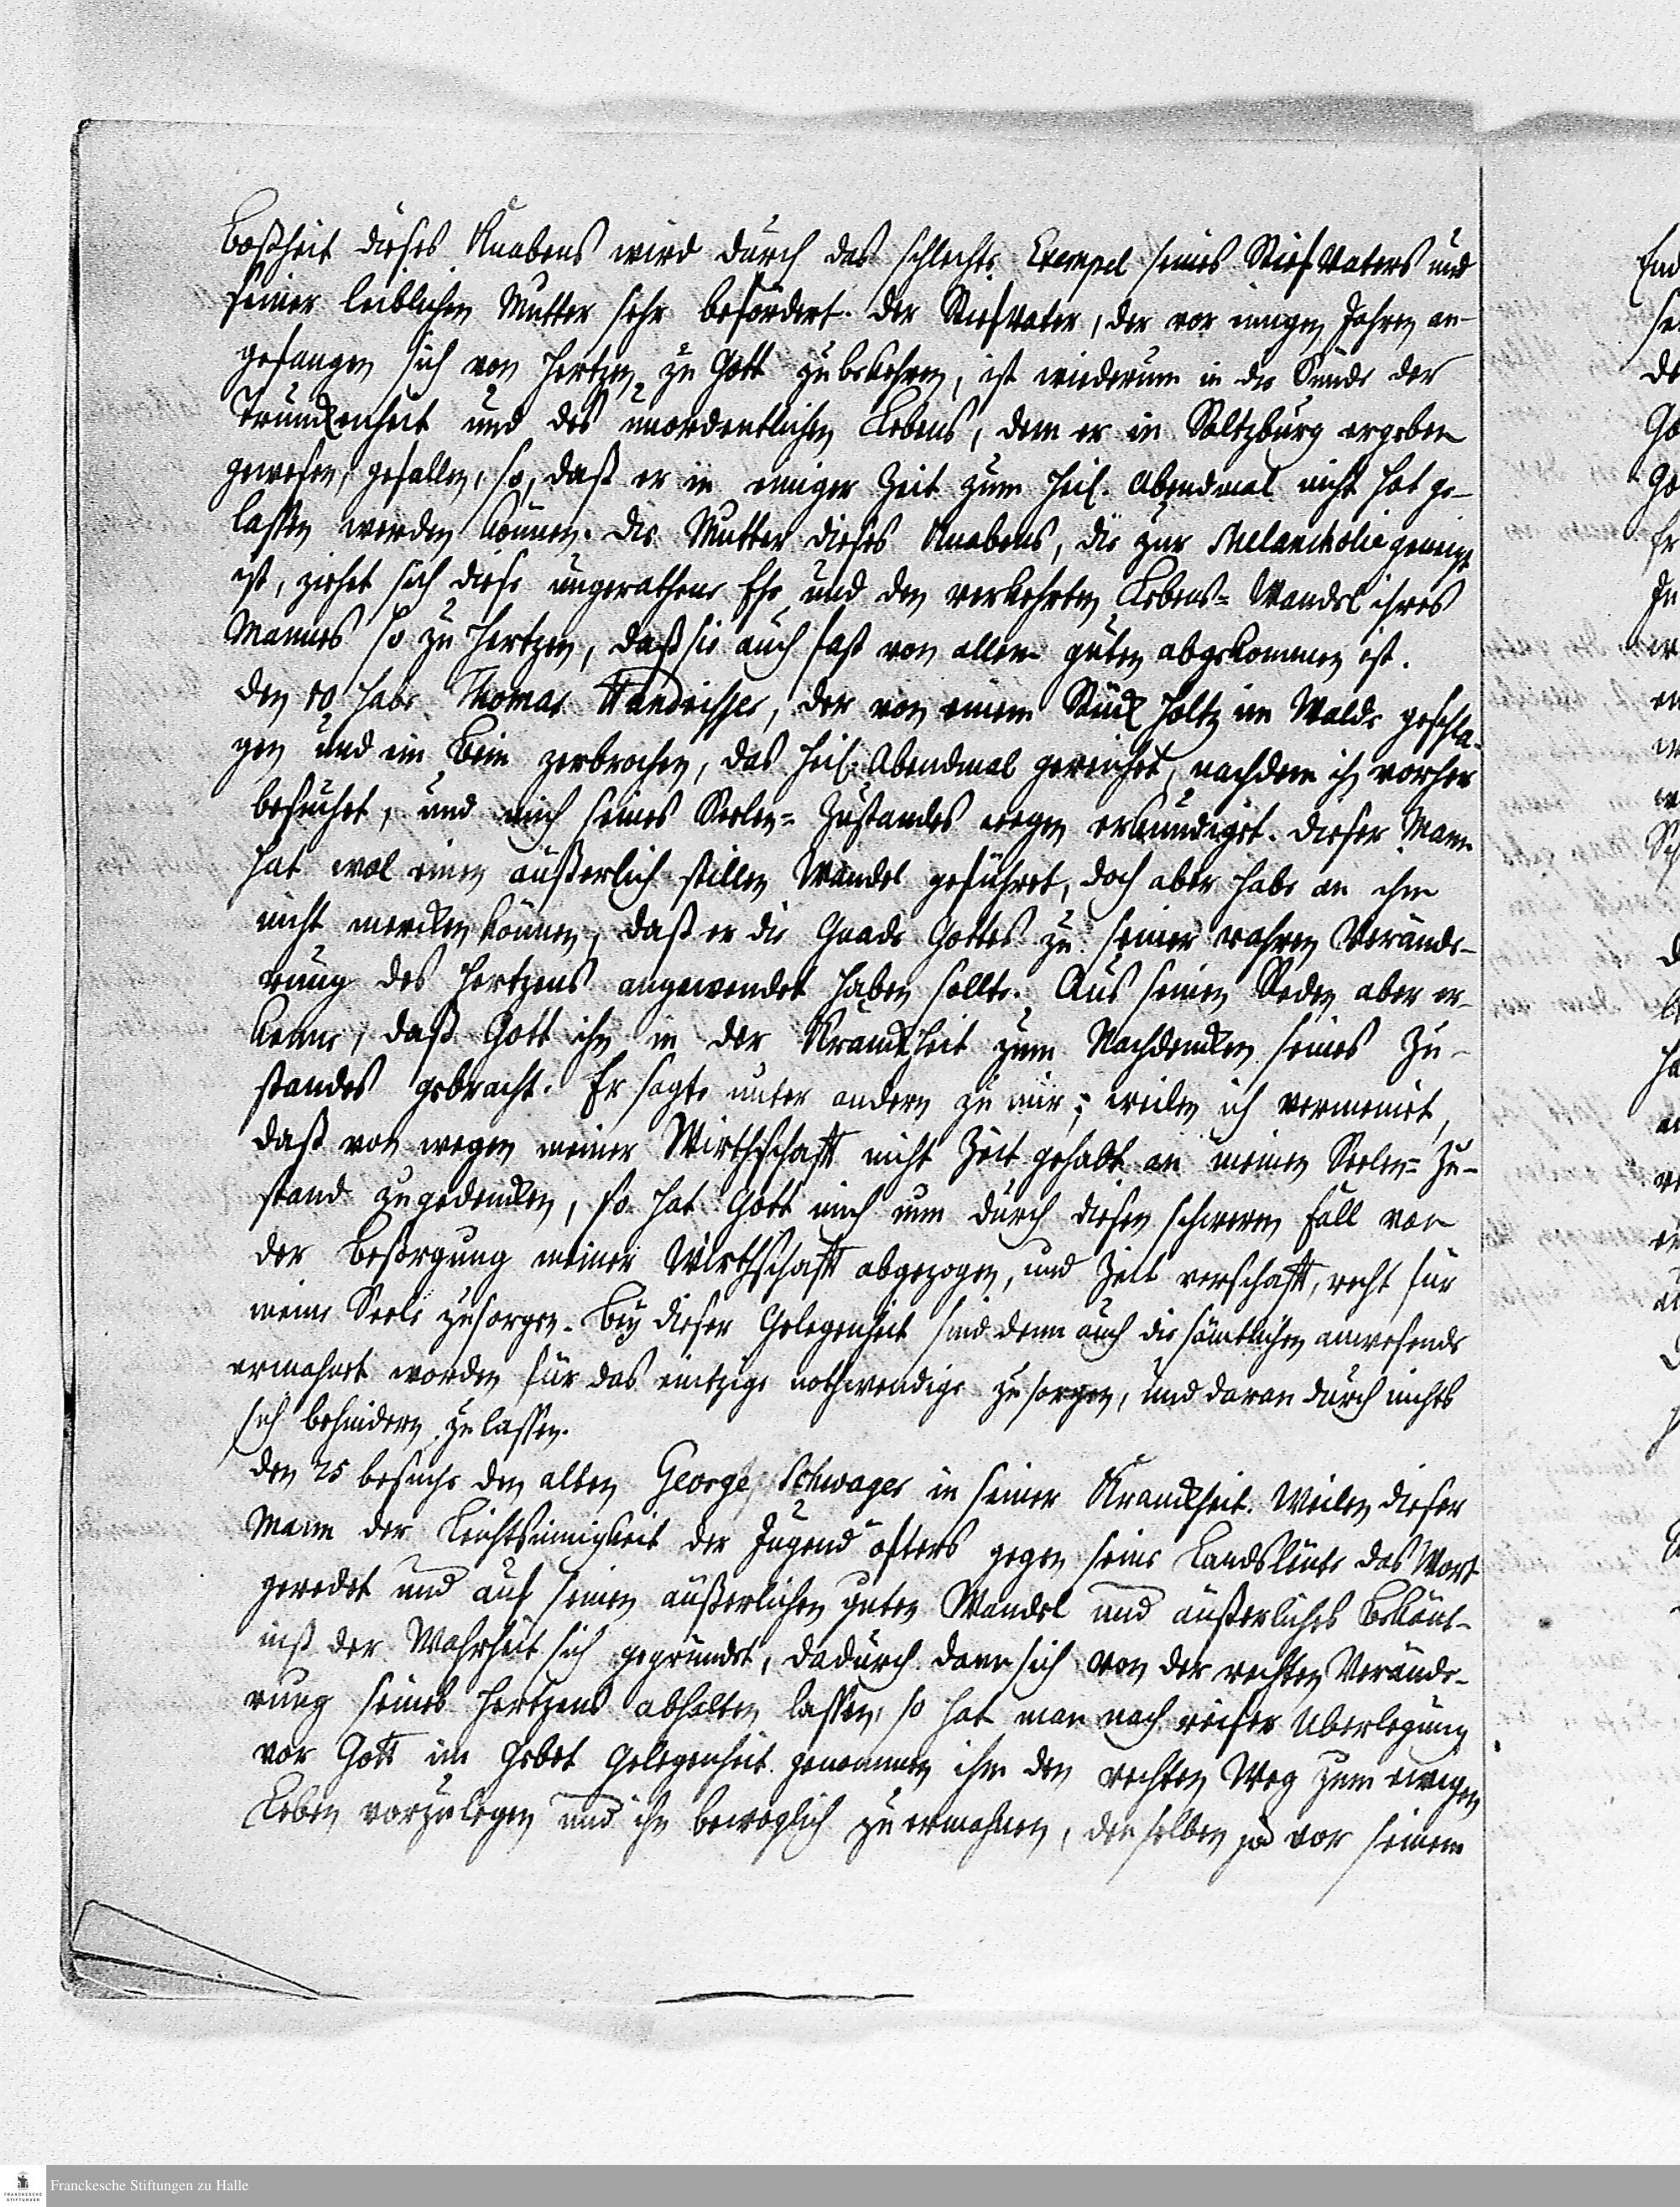 Boßheit dieses Knabens wird durch das schlechte Exempel seines Stief Vaters und
seiner leiblichen Mutter sehr befördert. Der Stiefvater, der vor einigen Jahren an-
gefangen sich von Hertzen zu Gott zu bekehren, ist wiederum in die Sünde der
Trunckenheit und des unordentlichen Lebens, dem er in Saltzburg ergeben
gewesen, gefallen, so, daß er in einiger Zeit zum Heil. Abendmal nicht hat ge-
lassen werden können. Die Mutter dieses Knabens, die zur Melancholie geneigt
ist, ziehet sich diese ungerathene Ehe und den verkehrten Lebens= Wandel ihres
Mannes so zu Hertzen, daß sie auch fast von allem guten abgekommen ist.
Den habe Thomas, der von einem Stück Holtz im Walde geschla-
gen und ein Bein zerbrochen, das Heil. Abendmal gereichet, nachdem ihn vorher
besuchet, und mich seines Seelen= Zustandes wegen erkundiget. Dieser Mann
hat wol einen äußerlich stillen Wandel geführet, doch aber habe an ihm
nicht mercken können, daß er die Gnade Gottes zu seiner wahren Verände-
rung des Hertzens angewendet haben sollte. Aus seinen Reden aber er-
kenne, daß Gott ihn in der Kranckheit zum Nachdencken seines Zu-
standes gebracht. Er sagte unter andern zu mir; weilen ich vermeinet,
daß von wegen meiner Wirthschafft nicht Zeit gehabt an meinen Seelen= Zu-
stand zu gedencken, so hat Gott mich nun durch diesen schweren Fall von
der Besorgung meiner Wirthschafft abgezogen, und Zeit verschafft, recht für
meine Seele zu sorgen. Bey dieser Gelegenheit sind denn auch die sämtlichen anwesende
ermahnet worden für das eintzige nothwendige zu sorgen, und daran durch nichts
sich behindern zu lassen.
Den 25 besuche den alten George Schwager in seiner Kranckheit. Weilen dieser
Mann der Leichtsinnigkeit der Jugend öfters gegen seine Landsleute das Wort
geredet und auf seinen äußerlichen guten Wandel und äußerliches Bekänt-
niß der Wahrheit sich gegründet, dadurch dann sich von der rechten Verände-
rung seines Hertzens abhalten lassen, so hat man nach reifer Überlegung
vor Gott im Gebet Gelegenheit genommen ihm den rechten Weg zum ewigen
Leben vorzulegen und ihn beweglich zu ermahnen, denselben ja vor seinem
Franckesche Stiftungen zu Halle